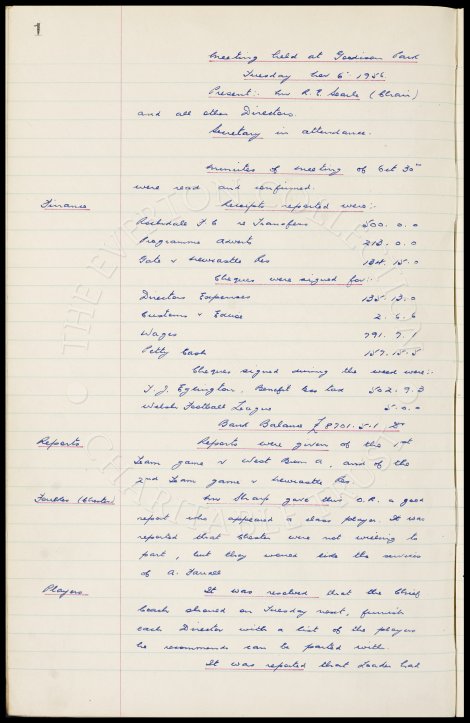 1
Meeting held at Goodison Park
Tuesday Nov 6th 1956.
Present:- Mr R. E. Searle (Chair)
and all other Directors.
Secretary in attendance.
Minutes of meeting of Oct 30th
were read and confirmed.
Finance Receipts reported were:-
Rochdale F C re Transfers 500. 0. 0
Programme Adverts 212. 0. 0
Gate v Newcastle Res 134. 15. 0
Cheques were signed for:-
Directors Expenses 135. 13. 0
Customs & Excise 2. 6. 6
Wages 791. 9. 1
Petty Cash 157. 15. 5
Cheques signed during the week were:-
T. J. Eglington, Benefit less tax 502. 9. 3
Welsh Football League 5. 0. 0
Bank Balance £8701. 5. 1
Reports Reports were given of the 1st
Team game v West Brom A, and of the
2nd Team game v Newcastle Res.
(Chester) Mr Sharp gave this O.R. a good
report who appeared a class player. It was
reported that Chester were not willing to
part, but they would like the services
of A. Farrall
Players It was resolved that the Chief
Coach should on Tuesday next, furnish
each Director with a list of the players
he recommends can be parted with.
It was reported that Leader had
THE EVERTON COLLECTION
CHARITABLE TRUST